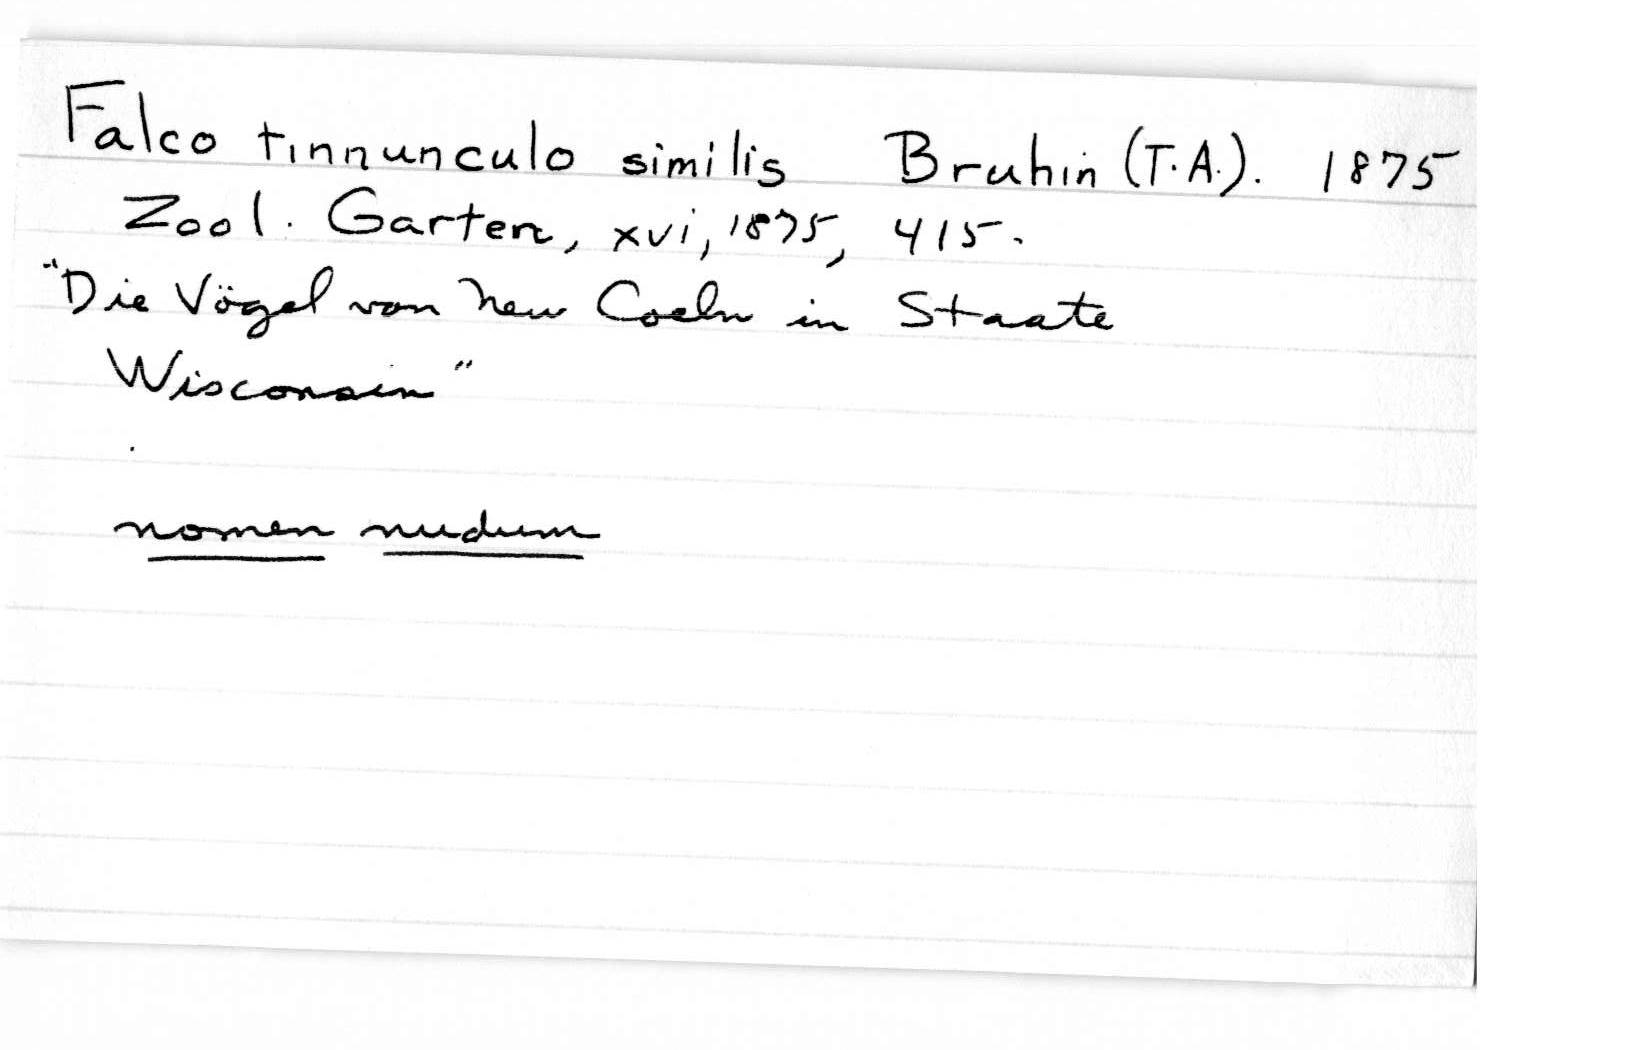 Falco tinnunculo similis Bruhin (T.A.). 1875
Zool. Garten, xvi, 1875, 415.
"Die Vögel von New Coeln in Staate
Wisconsin"
nomen nudum